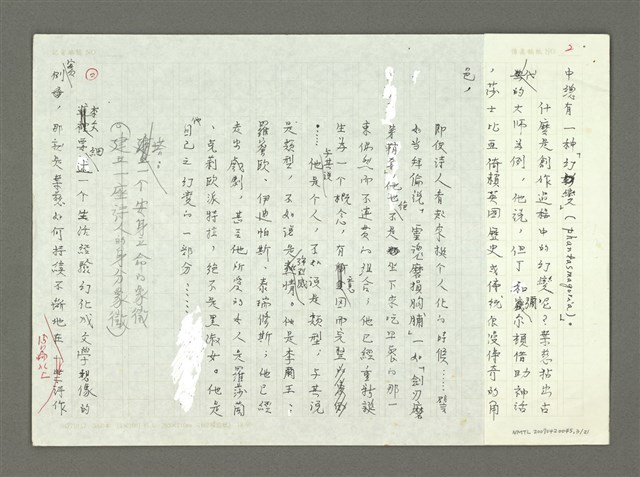 2
中總有一種「幻變」（phantasmagoria）。
什麼是創作過程中的幻變呢？葉慈拈出古
代的大師為例，他說，但丁和彌爾頓借助神話
，莎士比亞倚賴英國歷史或傳統浪漫傳奇的角
色，
即使詩人看起來挺個人化的時候……譬
如當拜倫說「靈魂磨損胸脯」一如「劍刃磨
他也不是坐下來吃早餐的那一
束偶然而不連貫的組合，他已經重新誕
生為一個概念，有意圖而完整
……他是個人，不如說是類型，與其說
是類型，不如說是熱情。他是李爾王、
羅蜜歐、伊迪帕斯、泰瑞修斯；他已經
走出戲劇，甚至他所愛的女人是羅莎蘭
、克莉歐派特拉，絕不是黑淑女。他是
他自己之幻變的一部分……
建立一個安身立命的象徵
（建立一座詩人的身分象徵）
李文
要一個生活經驗幻化成文學想像的
例子，那就是葉慈如何持續不斷地在詩作
NMTL 20090420085,2/21